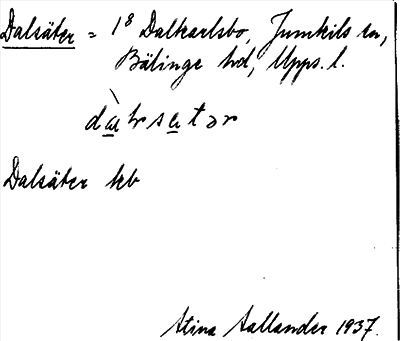 Dalsäter = 1⁸ Dalkarlsbo, Jumkils sn,
Bälinge hd, Upps. l.
Dalsäter kb
Stina Sallander 1937.